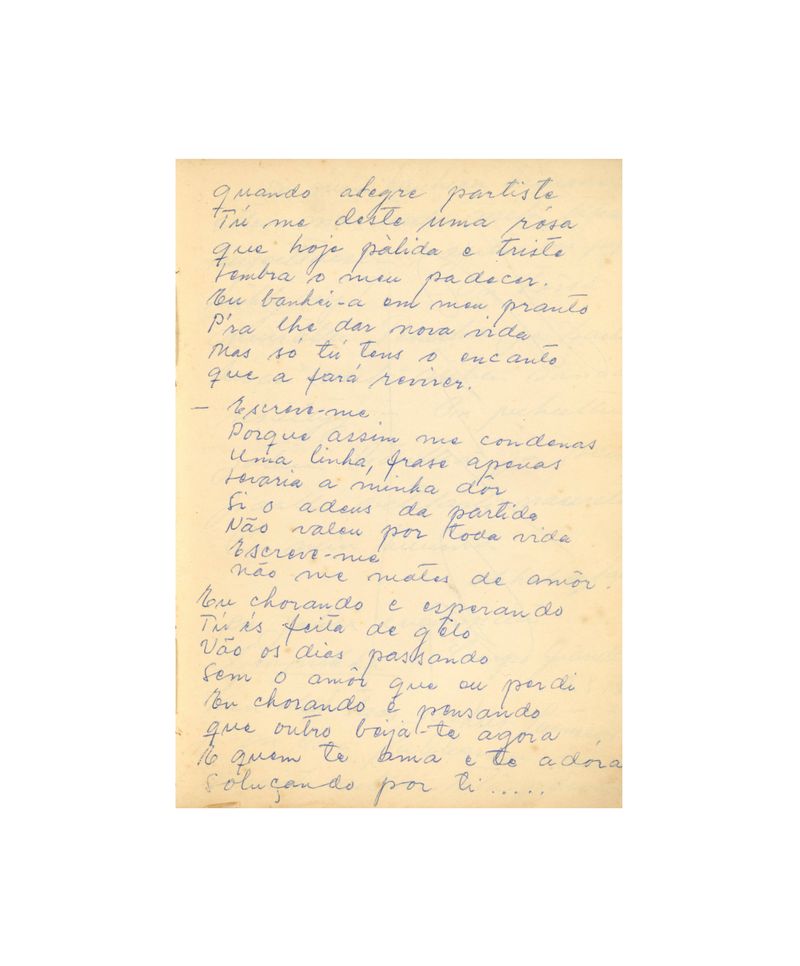 quando alegre partiste
Tú me deste uma rósa
que hoje pàlida e triste
Lembra o meu padecer.
Eu banhei-a em meu pranto
P'ra lhe dar nova vida
Mas só tú tens o encanto
que a fará reviver.
— Escreve-me
Porque assim me condenas
Uma linha, frase apenas
Levaria a minha dôr
Si o adeus da partida
Não valeu por toda vida
Escreve-me
Não me mates de amôr.
Eu chorando e esperando
Tú és feita de gêlo
Vão os dias passando
Sem o amôr que eu perdi
Eu chorando e pensando
que outro beija-te agora
E quem te ama e te adóra
Soluçando por ti.....